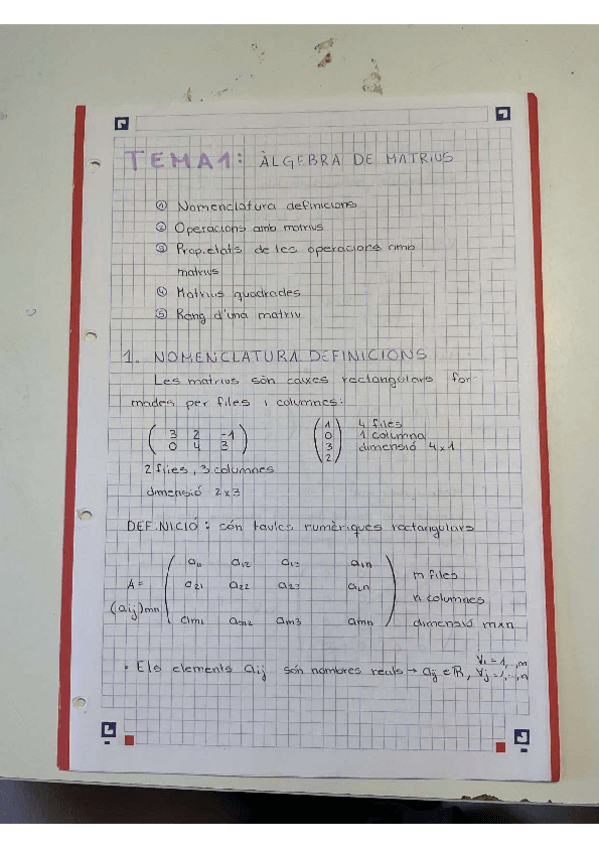 TEMA1: ÀLGEBRA DE MATRIUS
① Nomenclatura definicions
② Operacions amb matrius
③ Propietats de les operacions amb
matrius
④ Matrius quadrades
⑤ Rang d'una matriu
1. NOMENCLATURA DEFINICIONS
Les matrius són caixes rectangulars for-
mades per files i columnes:
( 3 2 -1 ) ( 1 ) 4 files
( 0 4 3 ) ( 0 ) 1 columna
( 3 ) dimensió 4x1
( 2 )
2 files, 3 columnes
dimensió 2x3
DEFINICIÓ: són taules numèriques rectangulars
a11 a12 a13 a1n
A= a21 a22 a23 a2n m files
n columnes
(aij)mn am1 am2 am3 amn dimensió mxn
• Els elements aij són nombres reals → aij ∈ ℝ, ∀i=1,..,m
∀j=1,..,n